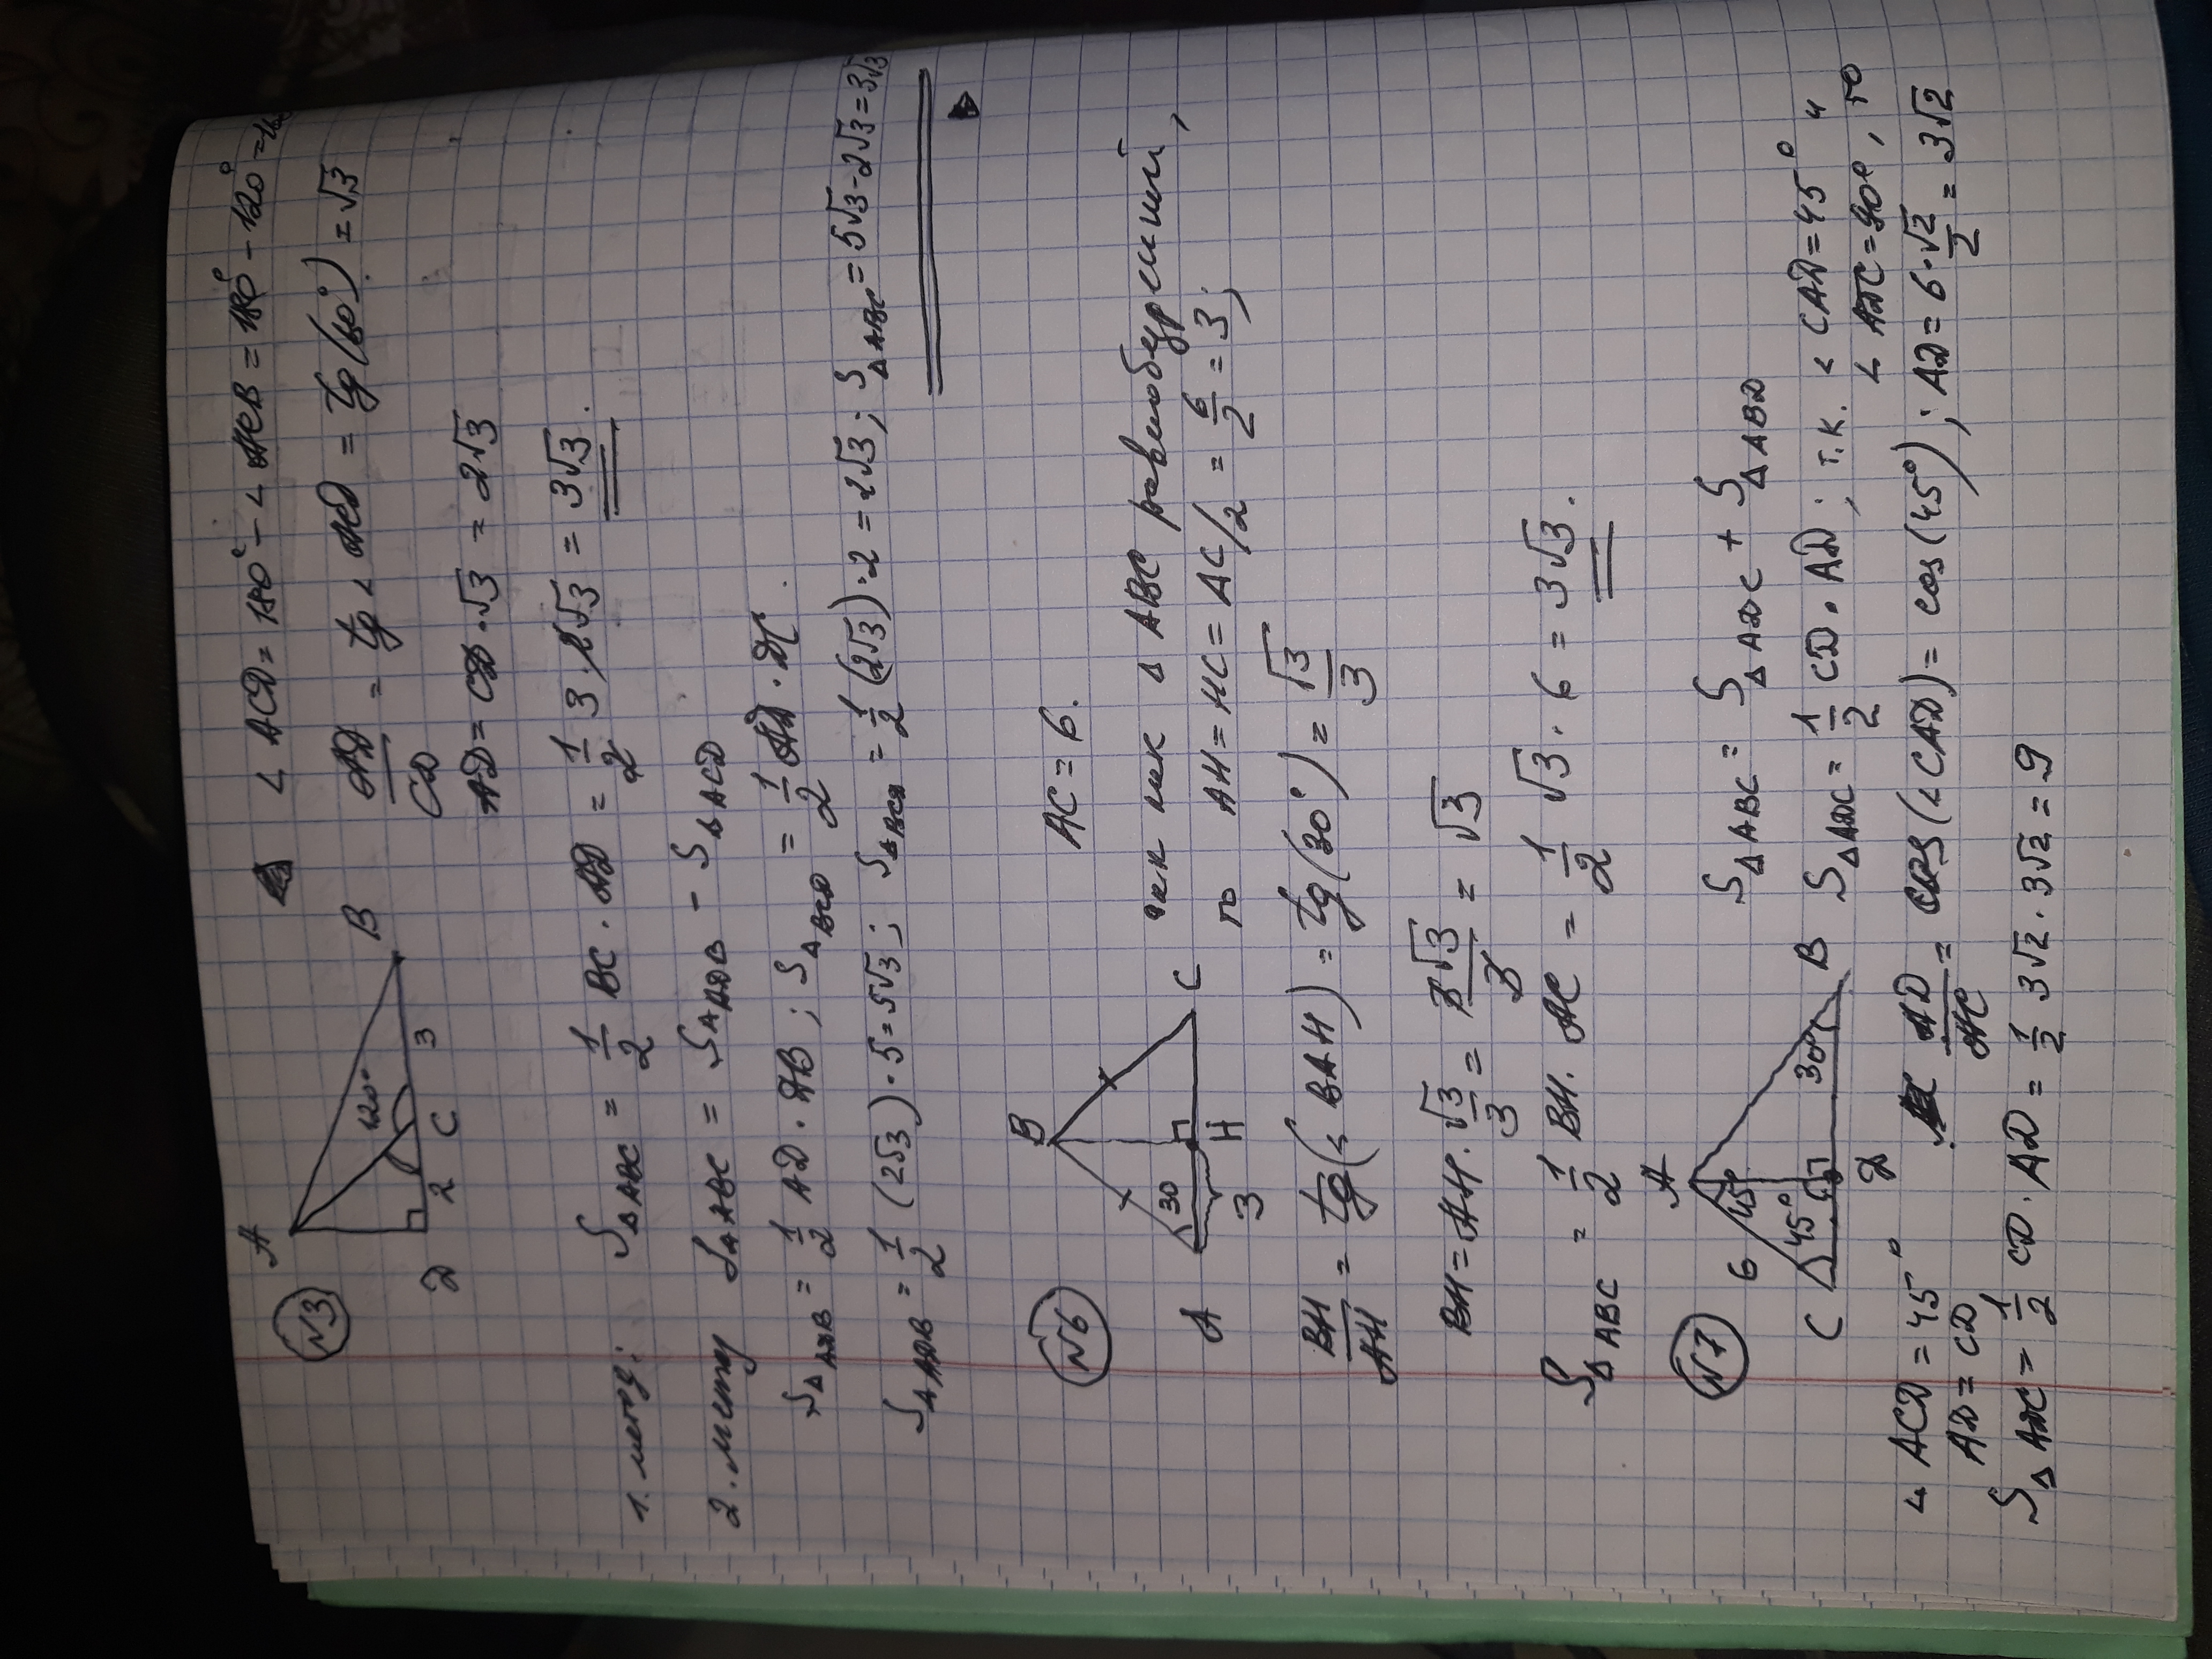 N3
A
B
D
C
2
3
120°
∠ ACD = 180° - ∠ ACB = 180° - 120° =
AD/CD = tg ∠ ACD = tg(60°) = √3
AD = CD · √3 = 2√3
1. метод: S△ABC = 1/2 BC · AD = 1/2 3 · 2√3 = 3√3.
2. метод S△ABC = S△ADB - S△ACD
S△ADB = 1/2 AD · DB ; S△BCD = 1/2 AD · DC.
S△ADB = 1/2 (2√3) · 5 = 5√3 ; S△ACD = 1/2 (2√3) · 2 = 2√3 ; S△ABC = 5√3 - 2√3 = 3√3
N6
B
A
C
H
30
3
AC = 6.
так как △ ABC равнобедренный,
то AH = HC = AC/2 = 6/2 = 3 ;
BH/AH = tg(∠ BAH) = tg(30°) = √3/3
BH = AH · √3/3 = 3√3/3 = √3
S△ABC = 1/2 BH · AC = 1/2 √3 · 6 = 3√3.
N7
A
C
B
D
6
45°
45°
30°
S△ABC = S△ADC + S△ABD
S△ADC = 1/2 CD · AD ; т.к. ∠ CAD = 45° и
∠ ADC = 90°, то
∠ ACD = 45°
AD/AC = cos(∠ CAD) = cos(45°) ; AD = 6 · √2/2 = 3√2
AD = CD
S△ADC = 1/2 CD · AD = 1/2 3√2 · 3√2 = 9